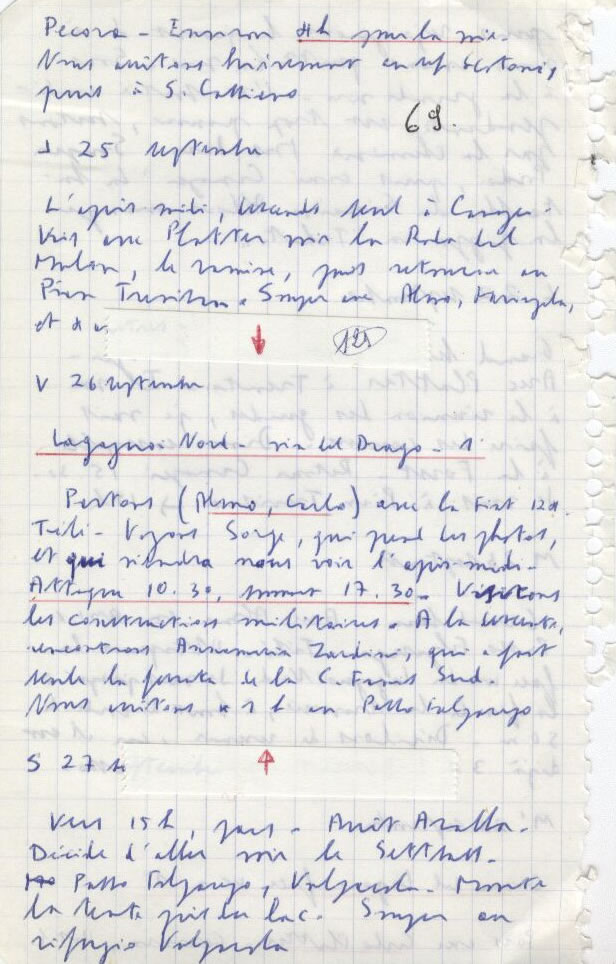 Pecora - Environ 4h pour la voie.
Nous arrêtons brièvement au ref Scotoni,
puis à S. Cassiano
69.
J 25 septembre
L'après midi, descends seul à
Vais avec Platter voir la Roda del
Mulon, le remise, puis retourne au
Pian Souper avec Almo, Mariangela,
et
121
V 26 septembre
Lagazuoi Nord - via del Drago - 1
Partons (Almo, Carlo) avec la Fiat 124
Voyons Sorge, qui prend des photos,
et qui viendra nous voir l'après midi.
Attaque 10.30, sommet 17.30. Visitons
les constructions militaires. A la descente,
rencontrons Annamaria Zardini, qui a fait
seule la ferrata de la C. Fanis Sud.
Nous arrêtons 1 h au Passo Falzarego
S 27
Vers 15h, pars -
Décide d'aller voir le
Passo Falzarego, Valparola. Monte
la tente près du lac. Souper au
rifugio Valparola